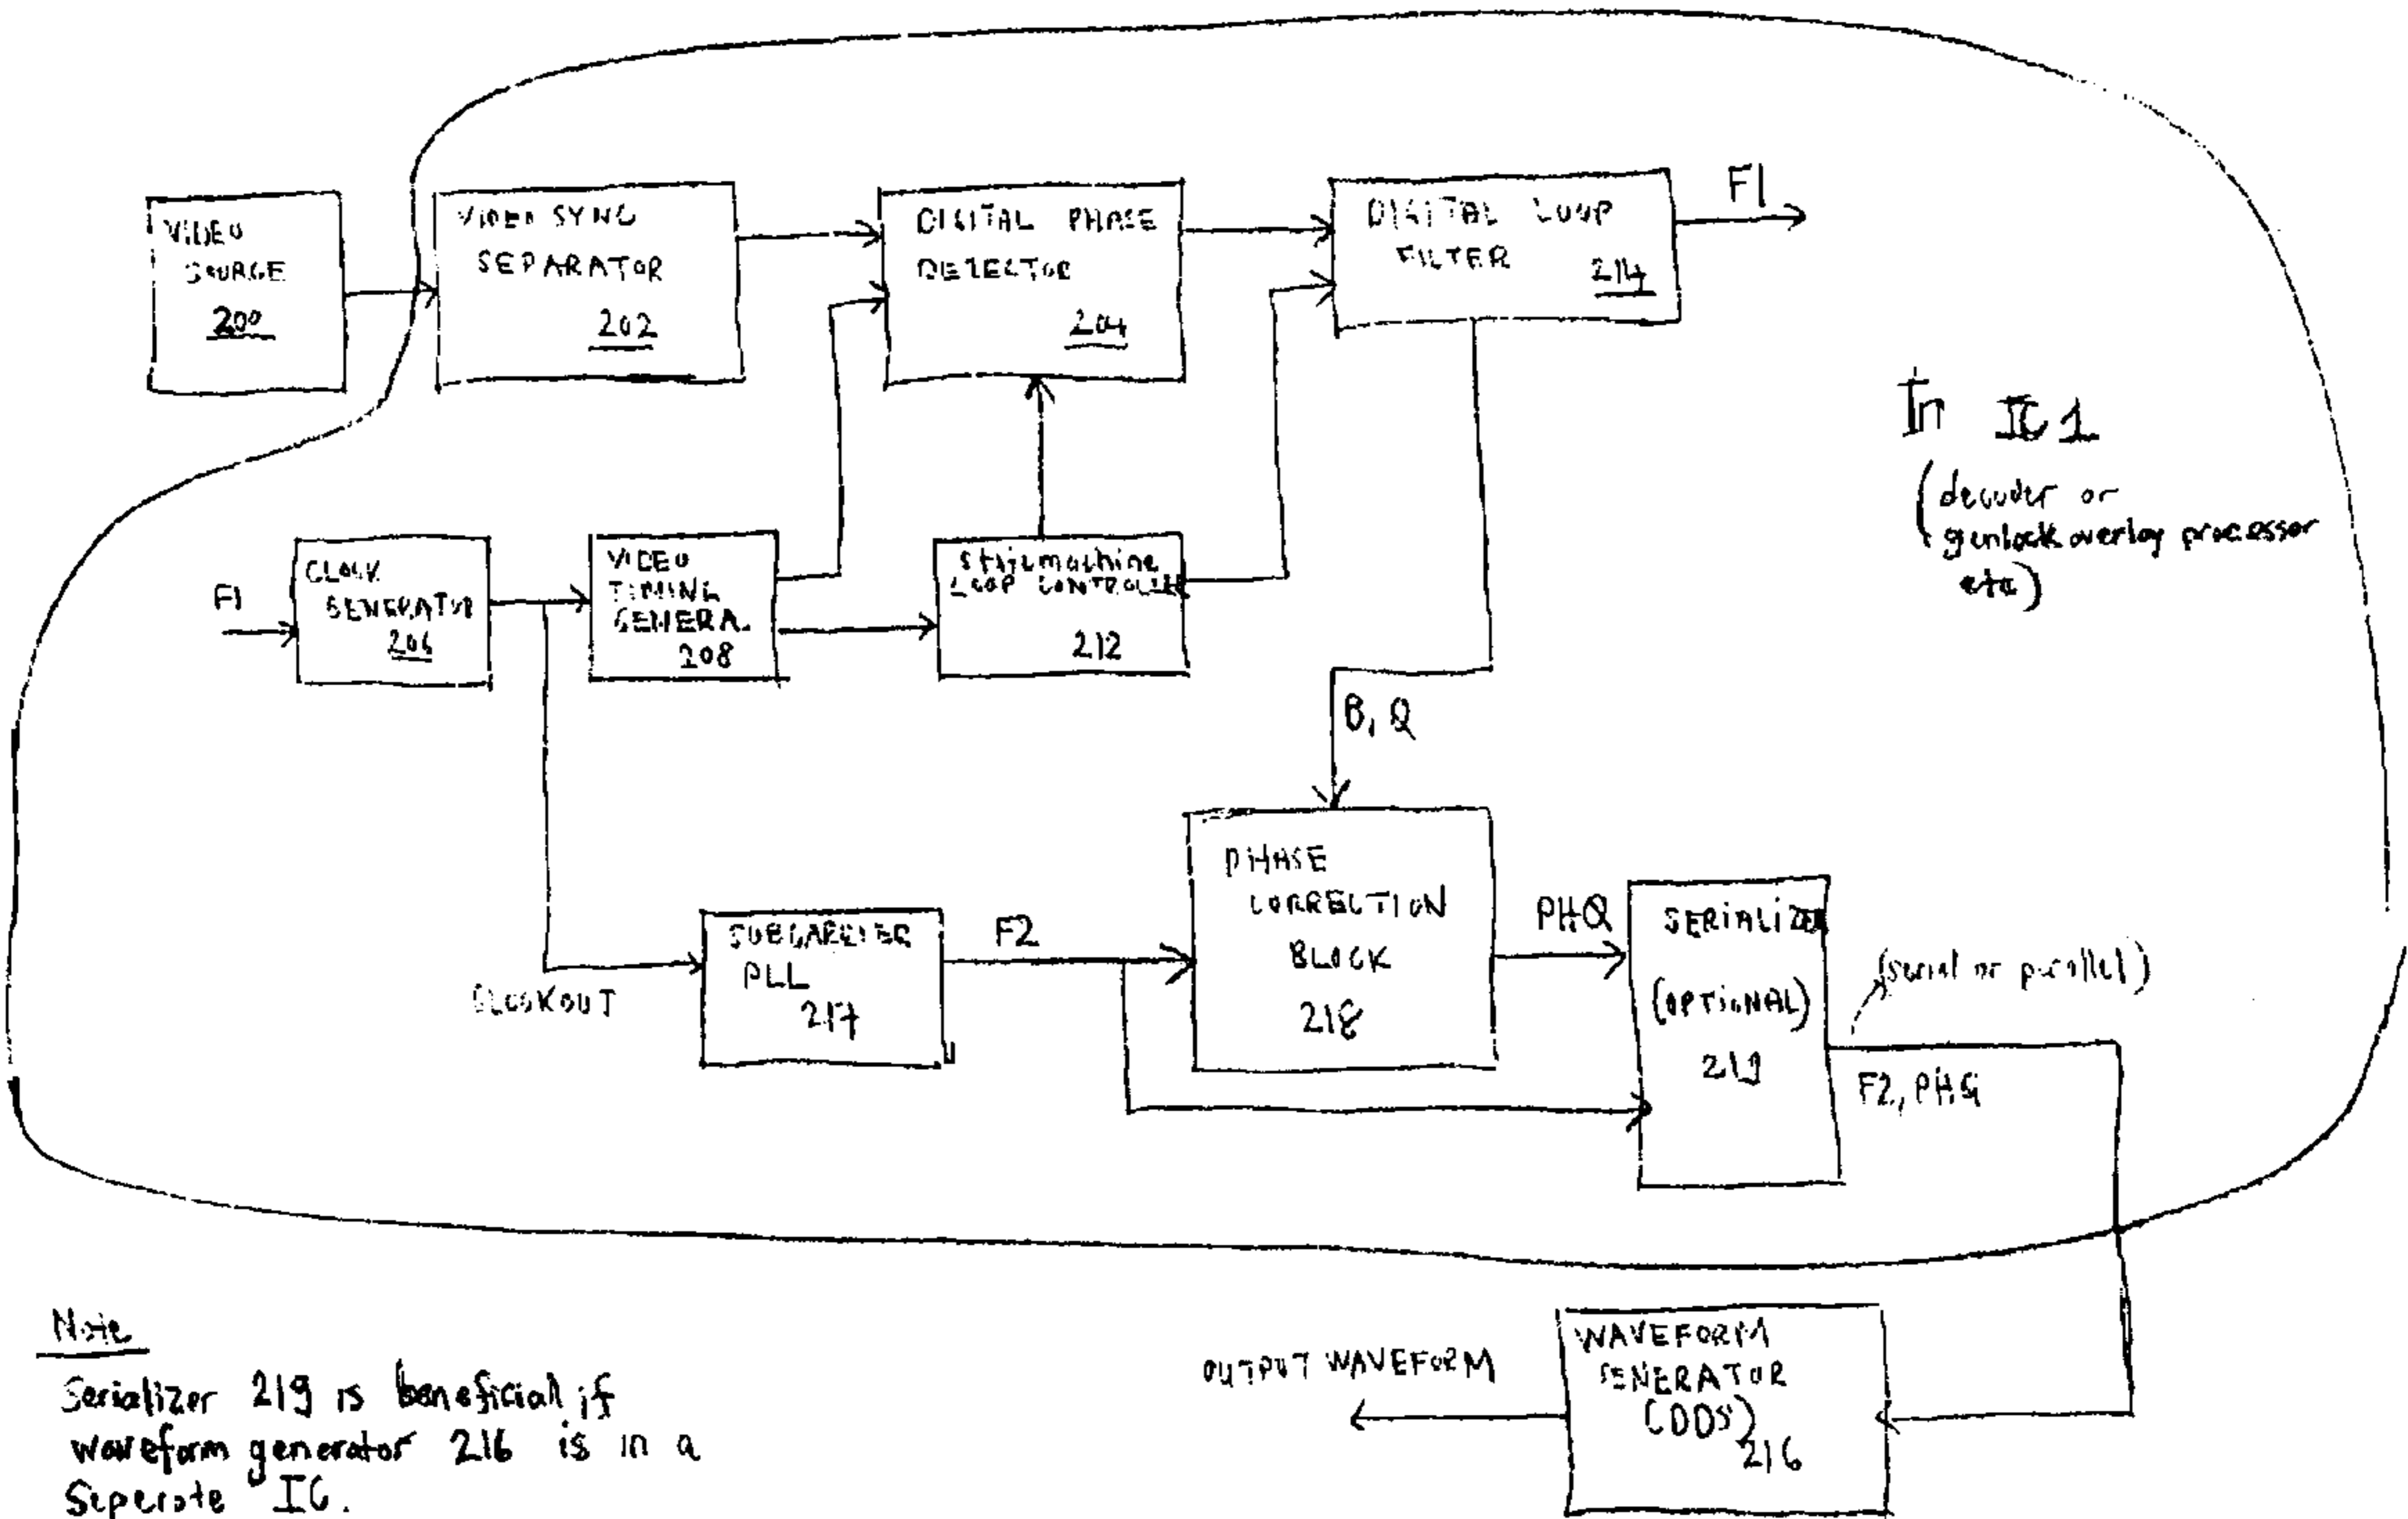 VIDEO
SOURCE
200
VIDEO SYNC
SEPARATOR
202
DIGITAL PHASE
DETECTOR
204
DIGITAL LOOP
FILTER
214
F1
In IC 1
(decoder or
genlock overlay processor
etc)
F1
CLOCK
GENERATOR
206
VIDEO
TIMING
GENERA.
208
Statemachine
LOOP CONTROLLER
212
B, Q
CLOCKOUT
SUBCARRIER
PLL
217
F2
PHASE
CORRECTION
BLOCK
218
PHQ
SERIALIZER
(OPTIONAL)
219
(serial or parallel)
F2, PHQ
Note
Serializer 219 is beneficial if
waveform generator 216 is in a
Seperate IC.
OUTPUT WAVEFORM
WAVEFORM
GENERATOR
(DDS)
216